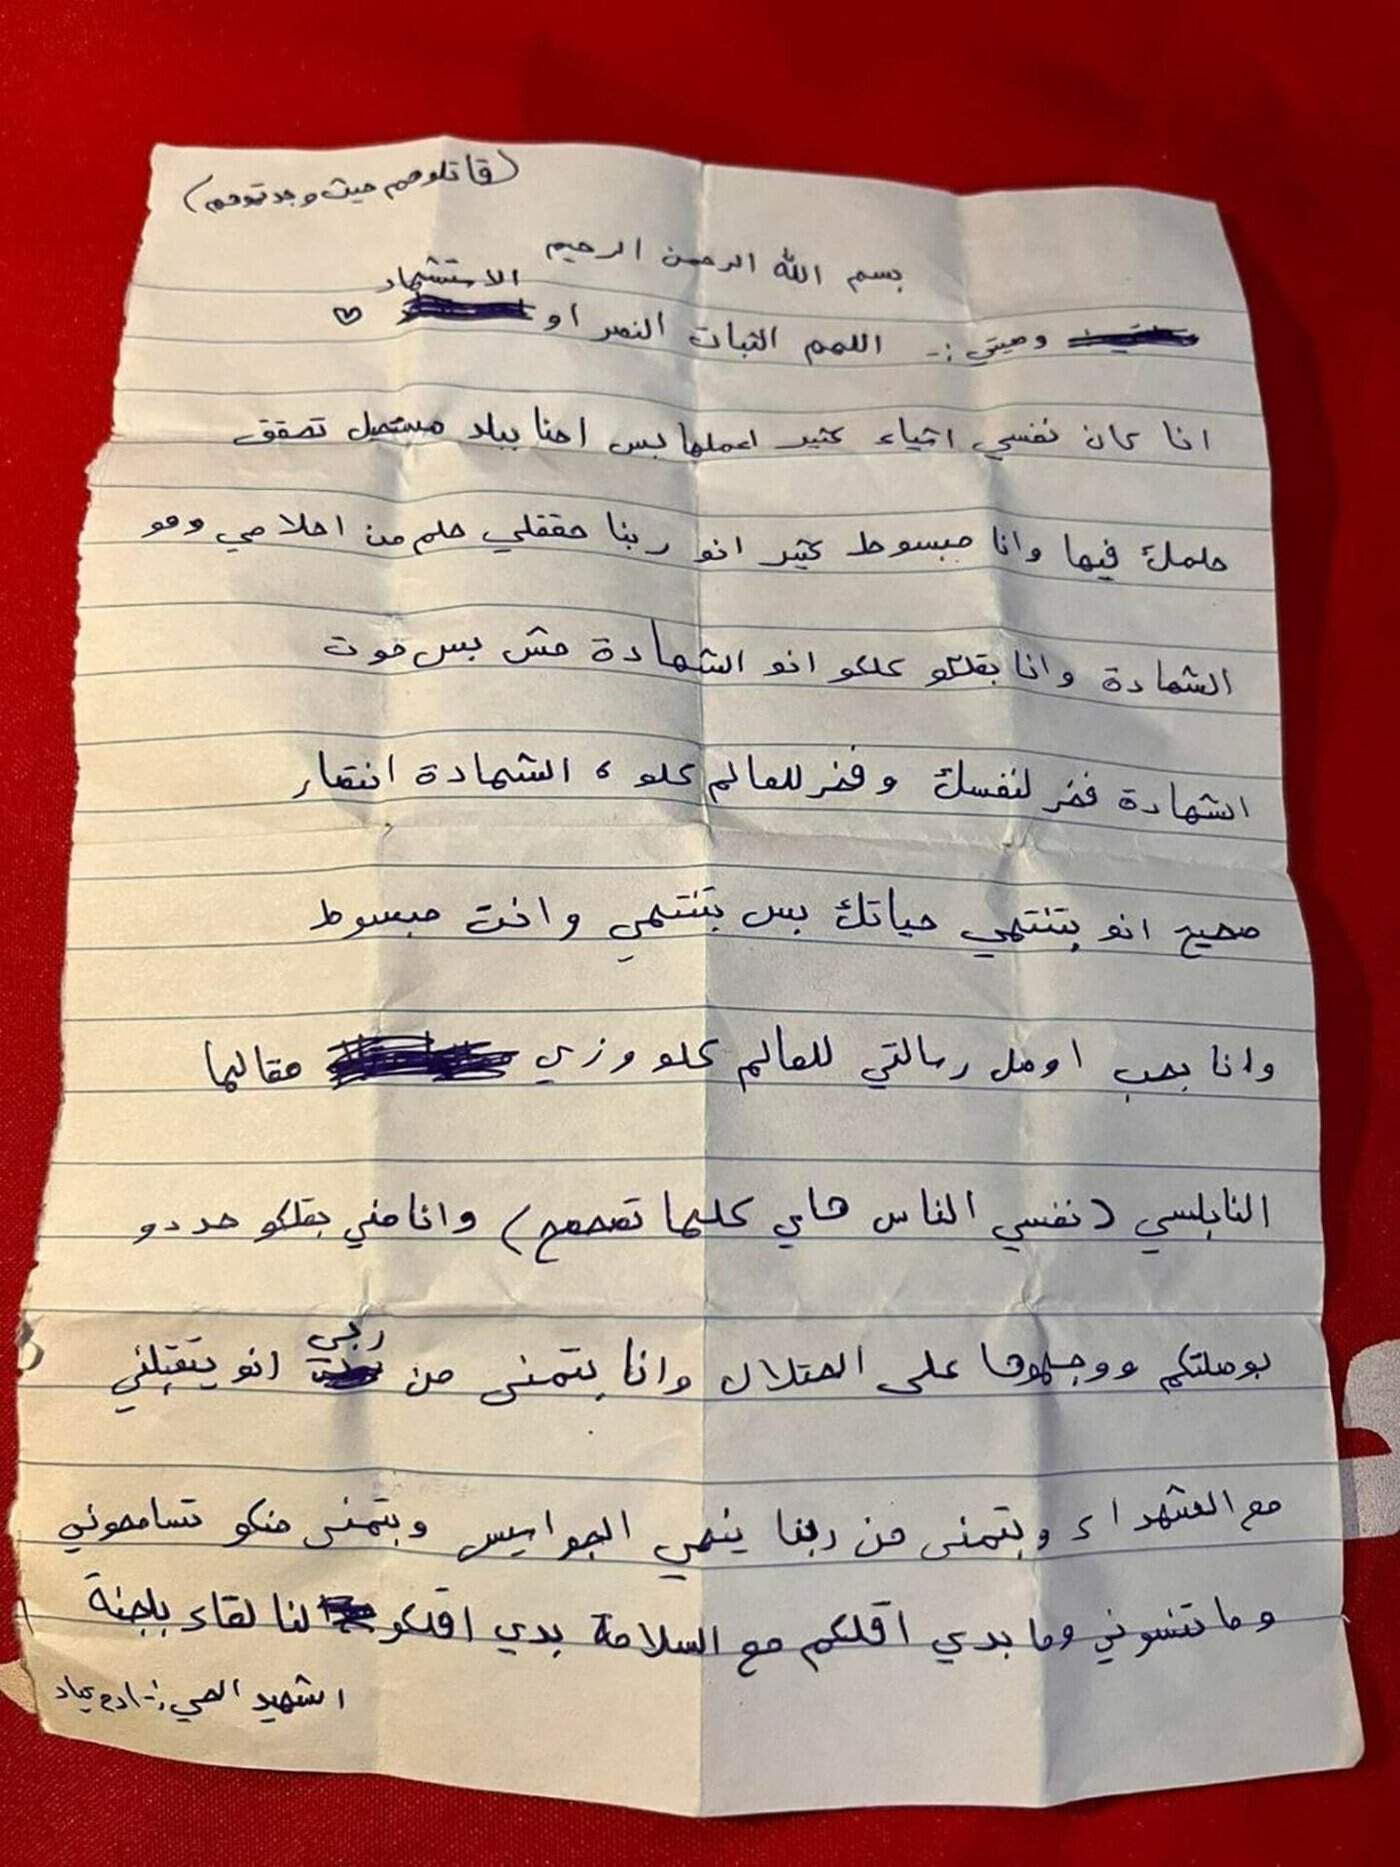 (قاتلوهم حيث وجدتموهم)
بسم الله الرحمن الرحيم
الاستشهاد
وصيتي :- اللهم الثبات النصر او ♡
انا كان نفسي اشياء كثير اعملها بس احنا ببلد مستحيل تحقق
حلمك فيها وانا مبسوط كثير انو ربنا حققلي حلم من احلامي وهو
الشهادة وانا بقلكو كلكو انو الشهادة مش بس موت
الشهادة فخر لنفسك وفخر للعالم كلو ، الشهادة انتصار
صحيح انو بتنتهي حياتك بس بتنتهي وانت مبسوط
وانا بحب اوصل رسالتي للعالم كلو وزي مقالها
النابلسي (نفسي الناس هاي كلها تصحصح) وانا مني بقلكو حددو
ربي
بوصلتكم ووجهوها على احتلال وانا بتمنى من انو يتقبلني
مع الشهداء وبتمنى من ربنا ينهي الجواسيس وبتمنى منكو تسامحوني
وما تنسوني وما بدي اقلكم مع السلامة بدي اقلكو لنا لقاء بلجنة
الشهيد الحي :- ادم عياد